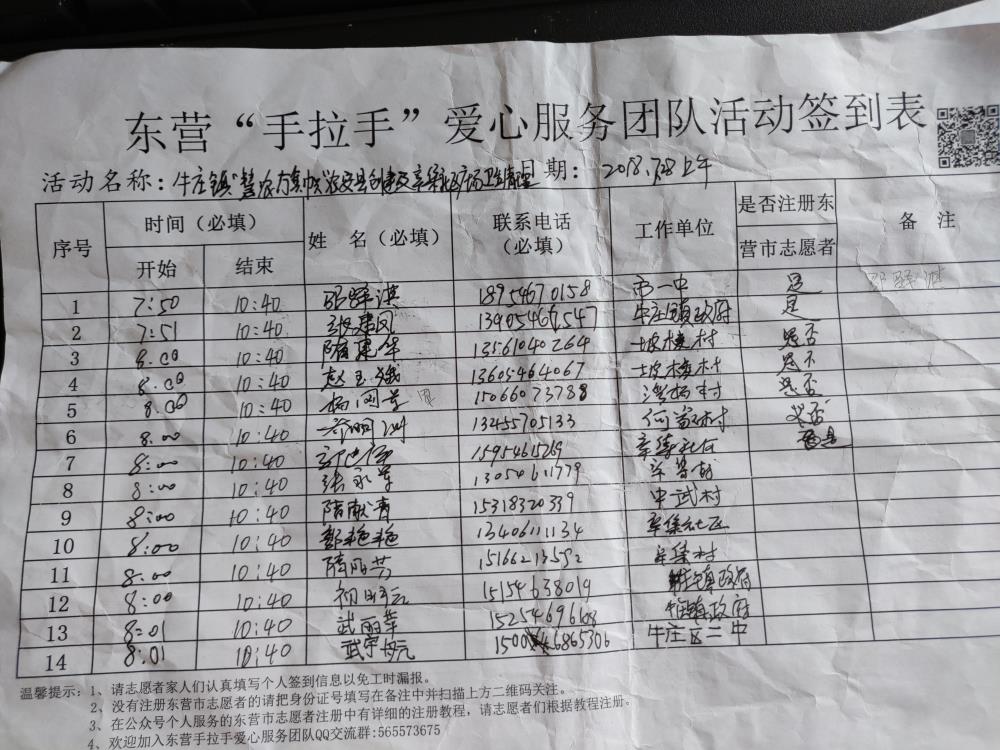 东营“手拉手”爱心服务团队活动签到表
活动名称：牛庄镇 日期： 2018.7.28上午
序号 时间（必填） 姓 名（必填） 联系电话（必填） 工作单位 是否注册东营市志愿者 备 注
开始 结束
1 7:50 10:40 18954670158 市一中 是
2 7:51 10:40 张建凤 13905467547 牛庄镇政府 是
3 8:00 10:40 隋建华 13561040264 坡楼村 否
4 8:00 10:40 赵玉娥 13605464067 坡楼村
5 8:00 10:40 杨 15066073788 村 否
6 8:00 10:40 13455705133 村 否
7 8:00 10:40 15954615269 辛集社区
8 8:00 10:40 张永军 13054611779
9 8:00 10:40 隋献青 15318320339 中武村
10 8:00 10:40 郭艳艳 13406111134 辛集社区
11 8:00 10:40 隋丽芳 15166213592 辛集村
12 8:00 10:40 15154638019 镇政府
13 8:01 10:40 武丽萍 镇政府
14 8:01 10:40 武 牛庄区二中
温馨提示：1、请志愿者家人们认真填写个人签到信息以免工时漏报。
2、没有注册东营市志愿者的请把身份证号填写在备注中并扫描上方二维码关注。
3、在公众号个人服务的东营市志愿者注册中有详细的注册教程，请志愿者们根据教程注册。
4、欢迎加入东营手拉手爱心服务团队QQ交流群:565573675